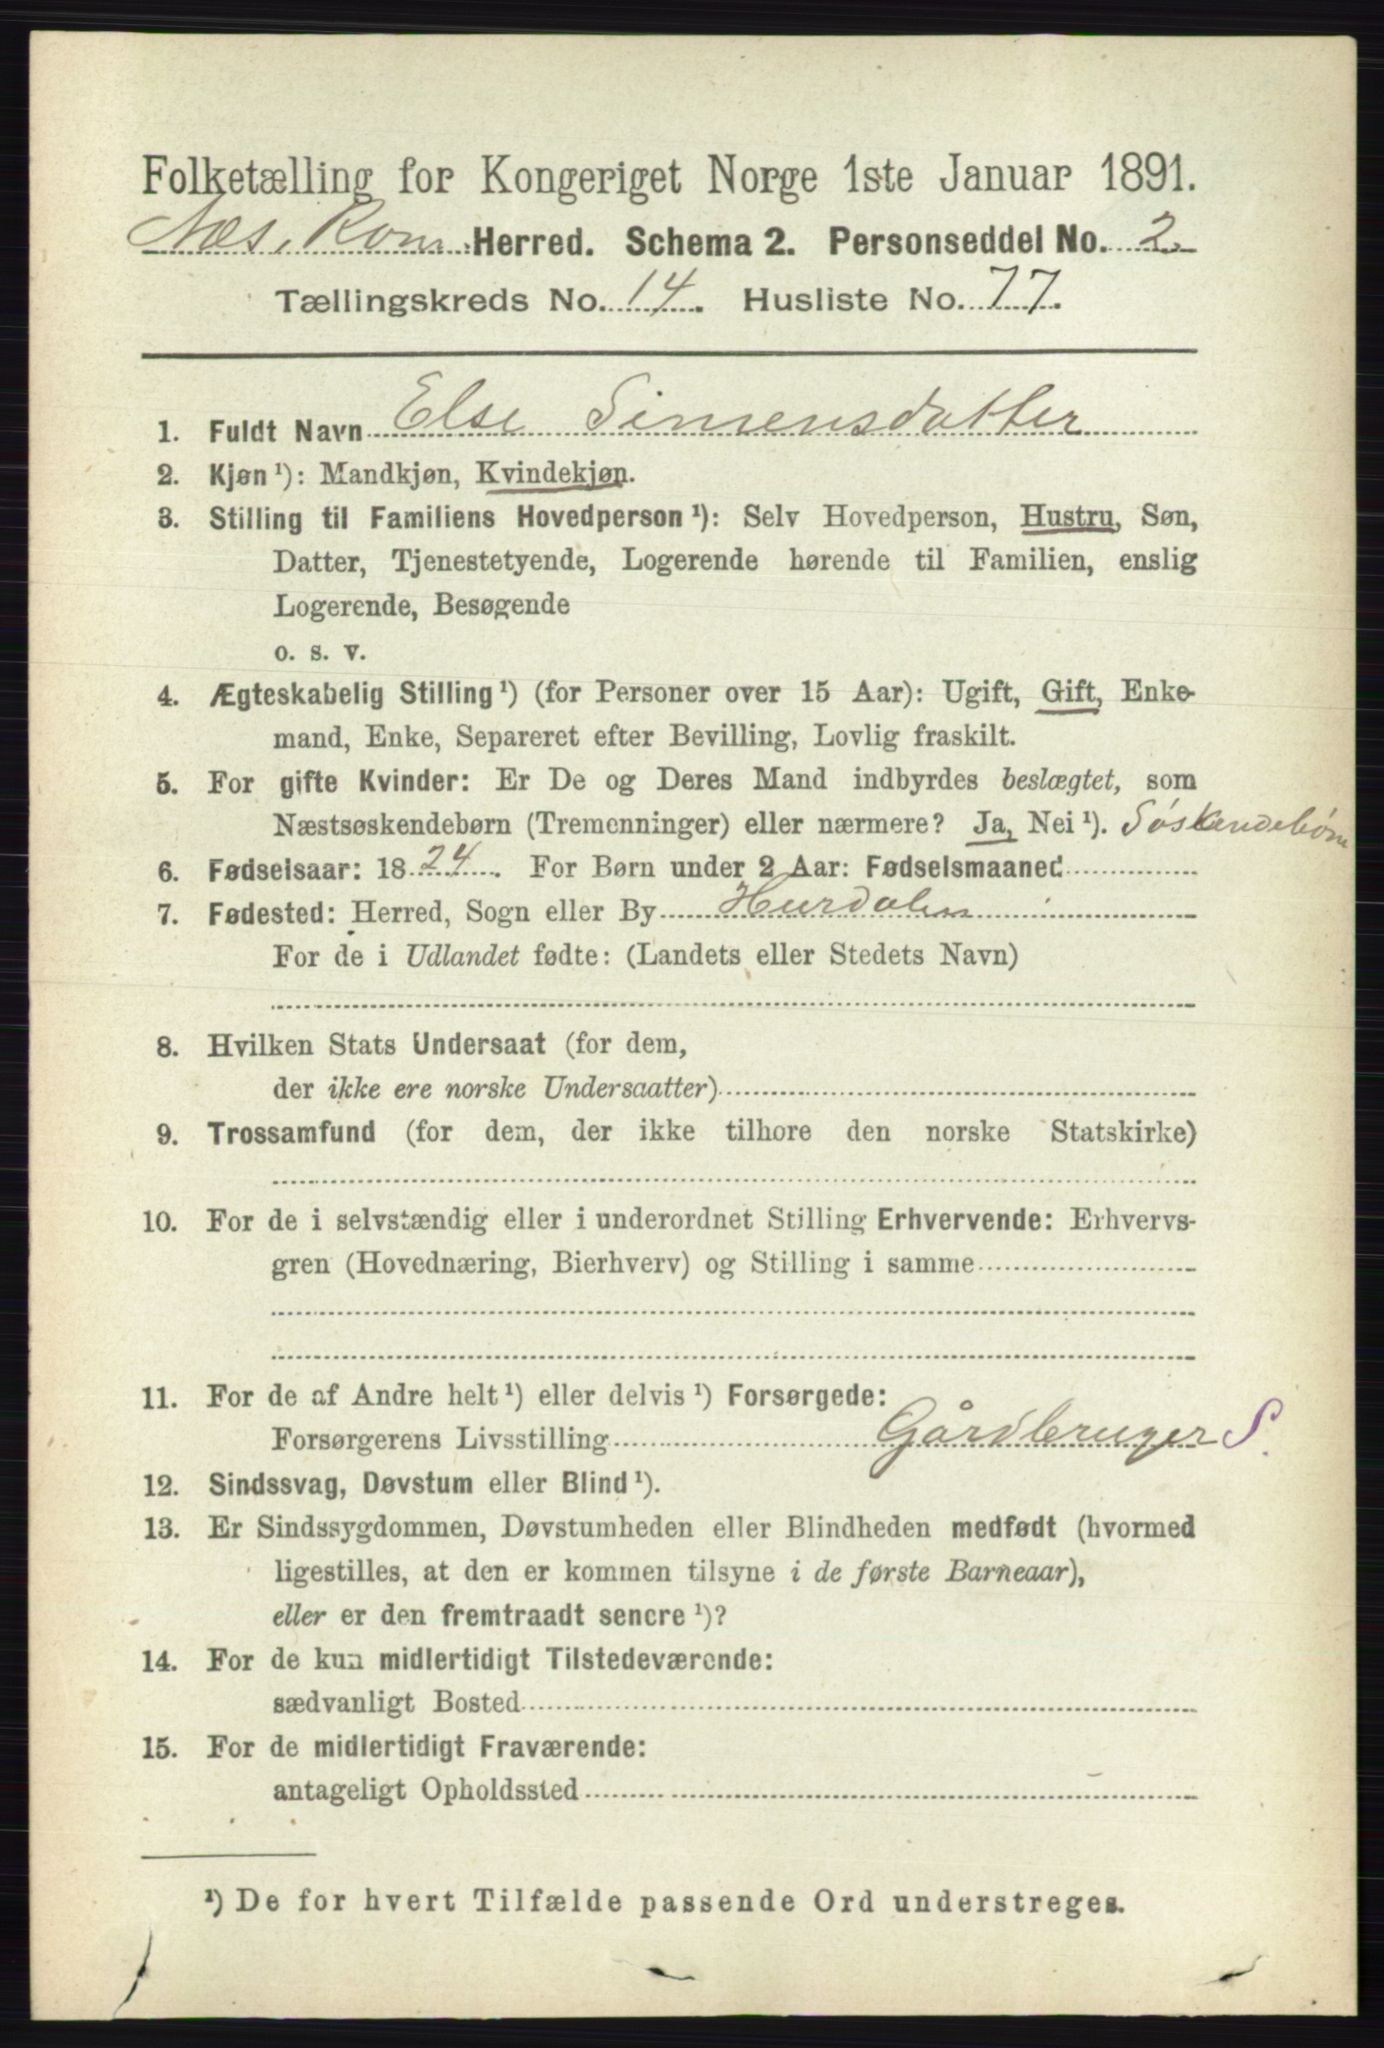 Folketælling for Kongeriget Norge 1ste Januar 1891.
Næs, Rom. Herred. Schema 2. Personseddel No. 2.
Tællingskreds No. 14. Husliste No. 77.
1. Fuldt Navn Else Simensdatter
2. Kjøn ¹): Mandkjøn, Kvindekjøn.
3. Stilling til Familiens Hovedperson ¹): Selv Hovedperson, Hustru, Søn,
Datter, Tjenestetyende, Logerende hørende til Familien, enslig
Logerende, Besøgende
o. s. v.
4. Ægteskabelig Stilling ¹) (for Personer over 15 Aar): Ugift, Gift, Enke-
mand, Enke, Separeret efter Bevilling, Lovlig fraskilt.
5. For gifte Kvinder: Er De og Deres Mand indbyrdes beslægtet, som
Næstsøskendebørn (Tremenninger) eller nærmere? Ja, Nei ¹). Søskendebørn
6. Fødselsaar: 1824. For Børn under 2 Aar: Fødselsmaaned
7. Fødested: Herred, Sogn eller By Hurdalen
For de i Udlandet fødte: (Landets eller Stedets Navn)
8. Hvilken Stats Undersaat (for dem,
der ikke ere norske Undersaatter)
9. Trossamfund (for dem, der ikke tilhøre den norske Statskirke)
10. For de i selvstændig eller i underordnet Stilling Erhvervende: Erhvervs-
gren (Hovednæring, Bierhverv) og Stilling i samme
11. For de af Andre helt ¹) eller delvis ¹) Forsørgede:
Forsørgerens Livsstilling Gårdbruger S.
12. Sindssvag, Døvstum eller Blind ¹).
13. Er Sindssygdommen, Døvstumheden eller Blindheden medfødt (hvormed
ligestilles, at den er kommen tilsyne i de første Barneaar),
eller er den fremtraadt senere ¹)?
14. For de kun midlertidigt Tilstedeværende:
sædvanligt Bosted
15. For de midlertidigt Fraværende:
antageligt Opholdssted
¹) De for hvert Tilfælde passende Ord understreges.